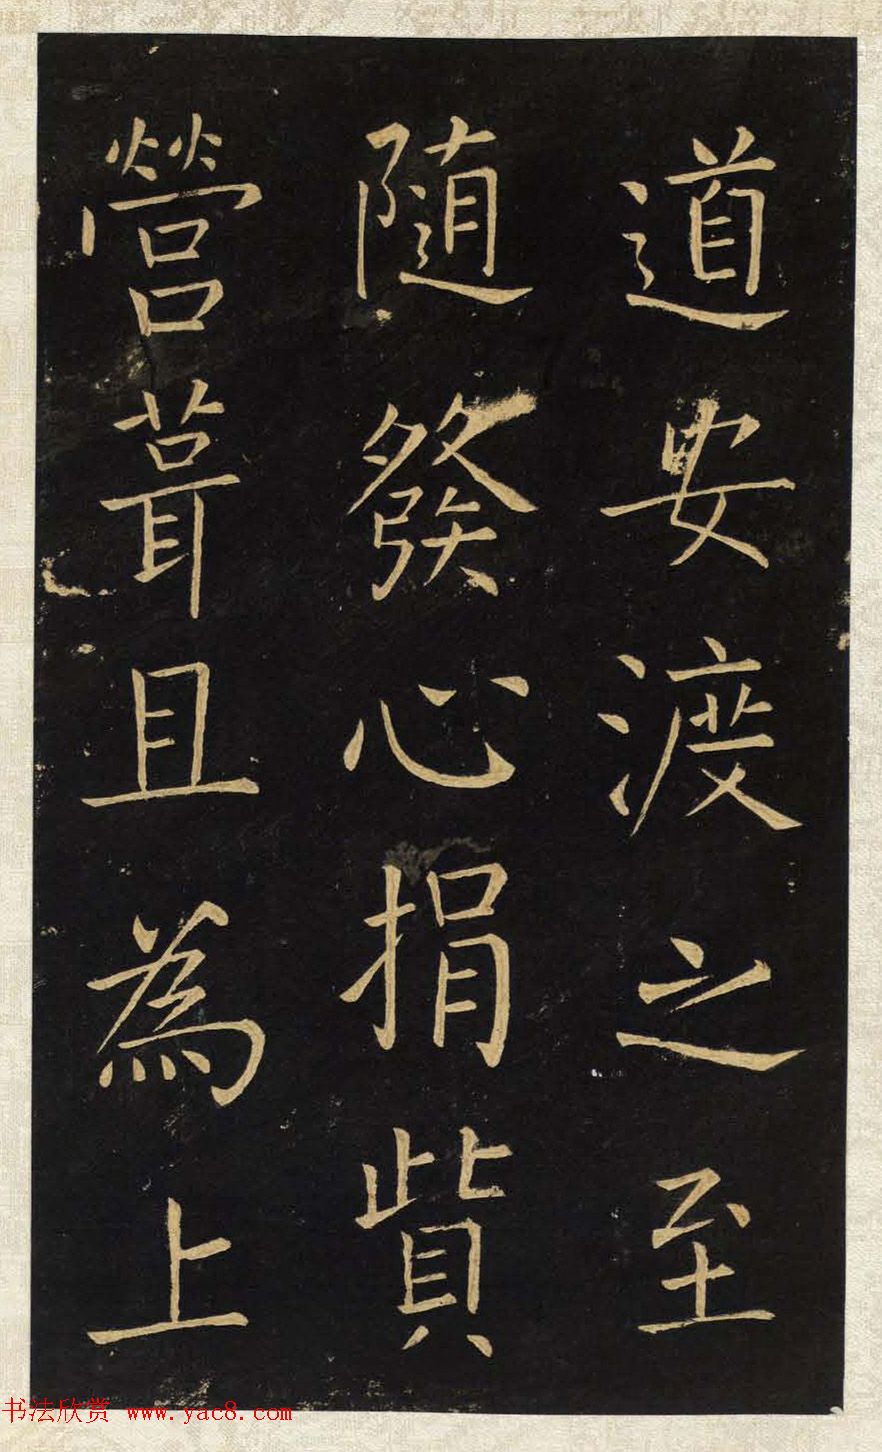 道安渡之至
随發心捐貲
營葺且為上
书法欣赏 www.yac8.com